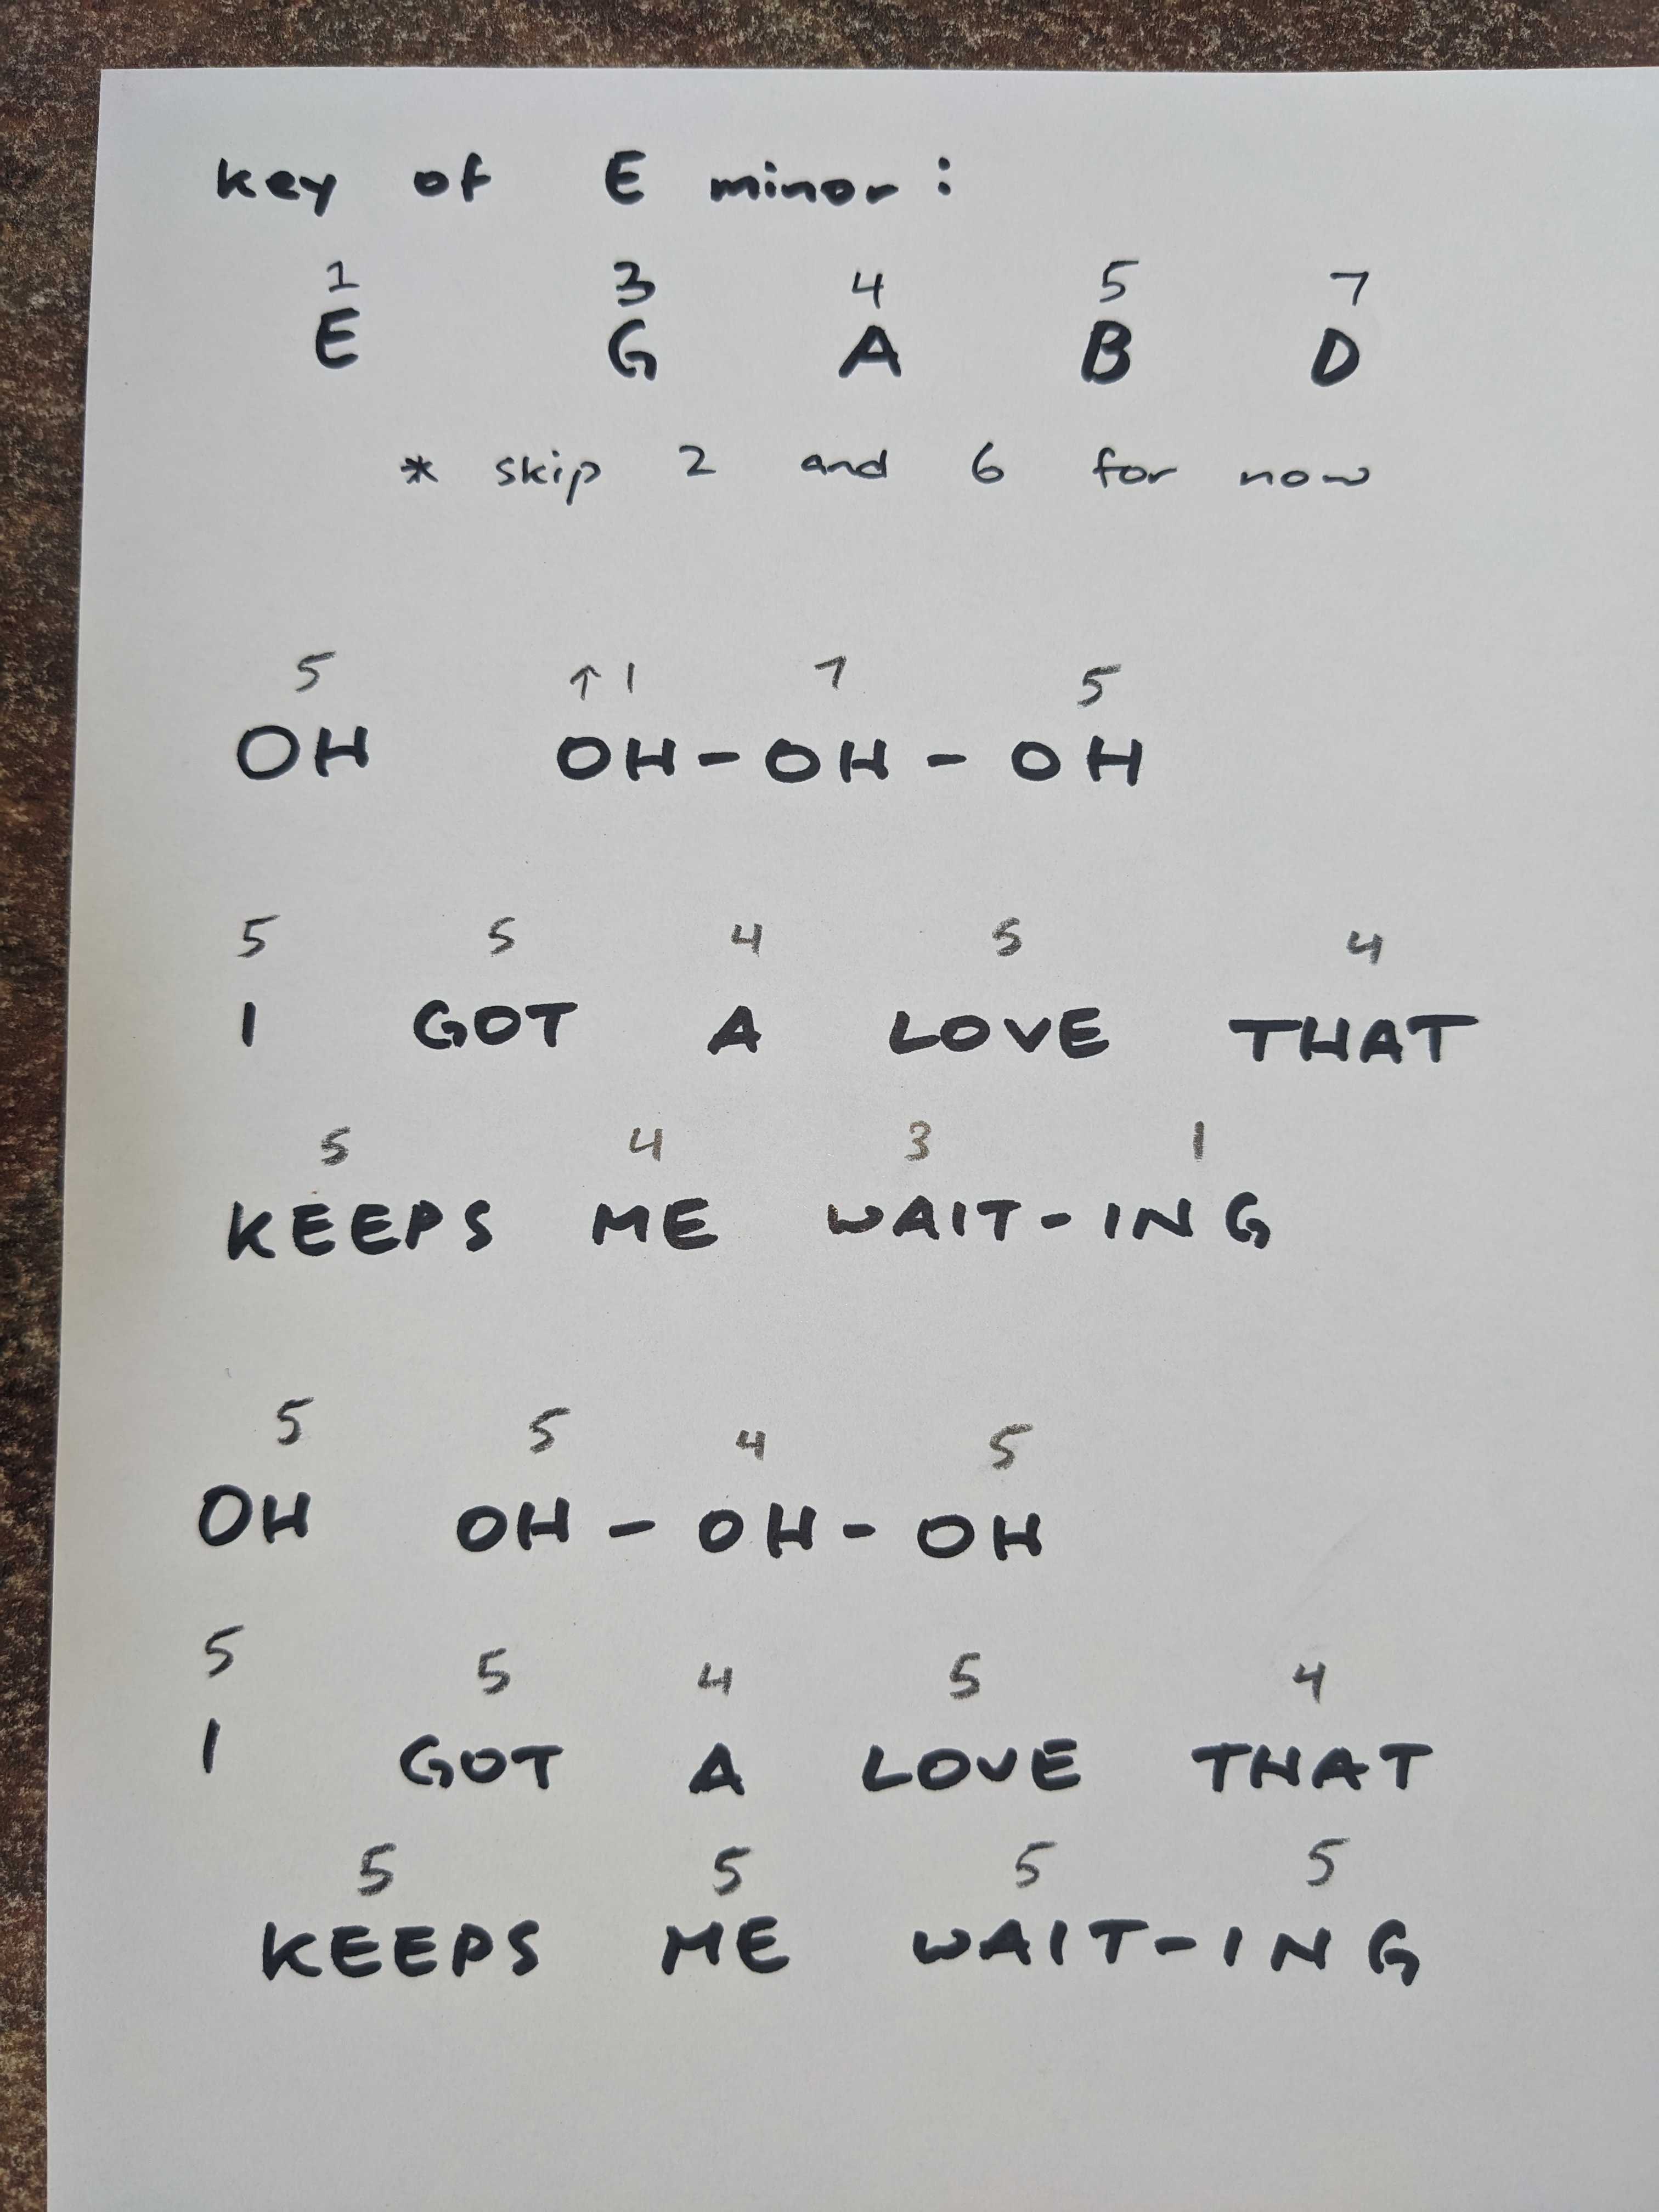 key of E minor:
1 3 4 5 7
E G A B D
* skip 2 and 6 for now
5 ↑1 7 5
OH OH-OH-OH
5 5 4 5 4
I GOT A LOVE THAT
5 4 3 1
KEEPS ME WAIT-ING
5 5 4 5
OH OH-OH-OH
5 5 4 5 4
I GOT A LOVE THAT
5 5 5 5
KEEPS ME WAIT-ING